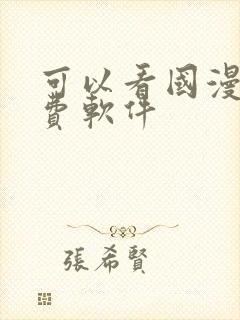 可以看國漫
費軟件
張希賢